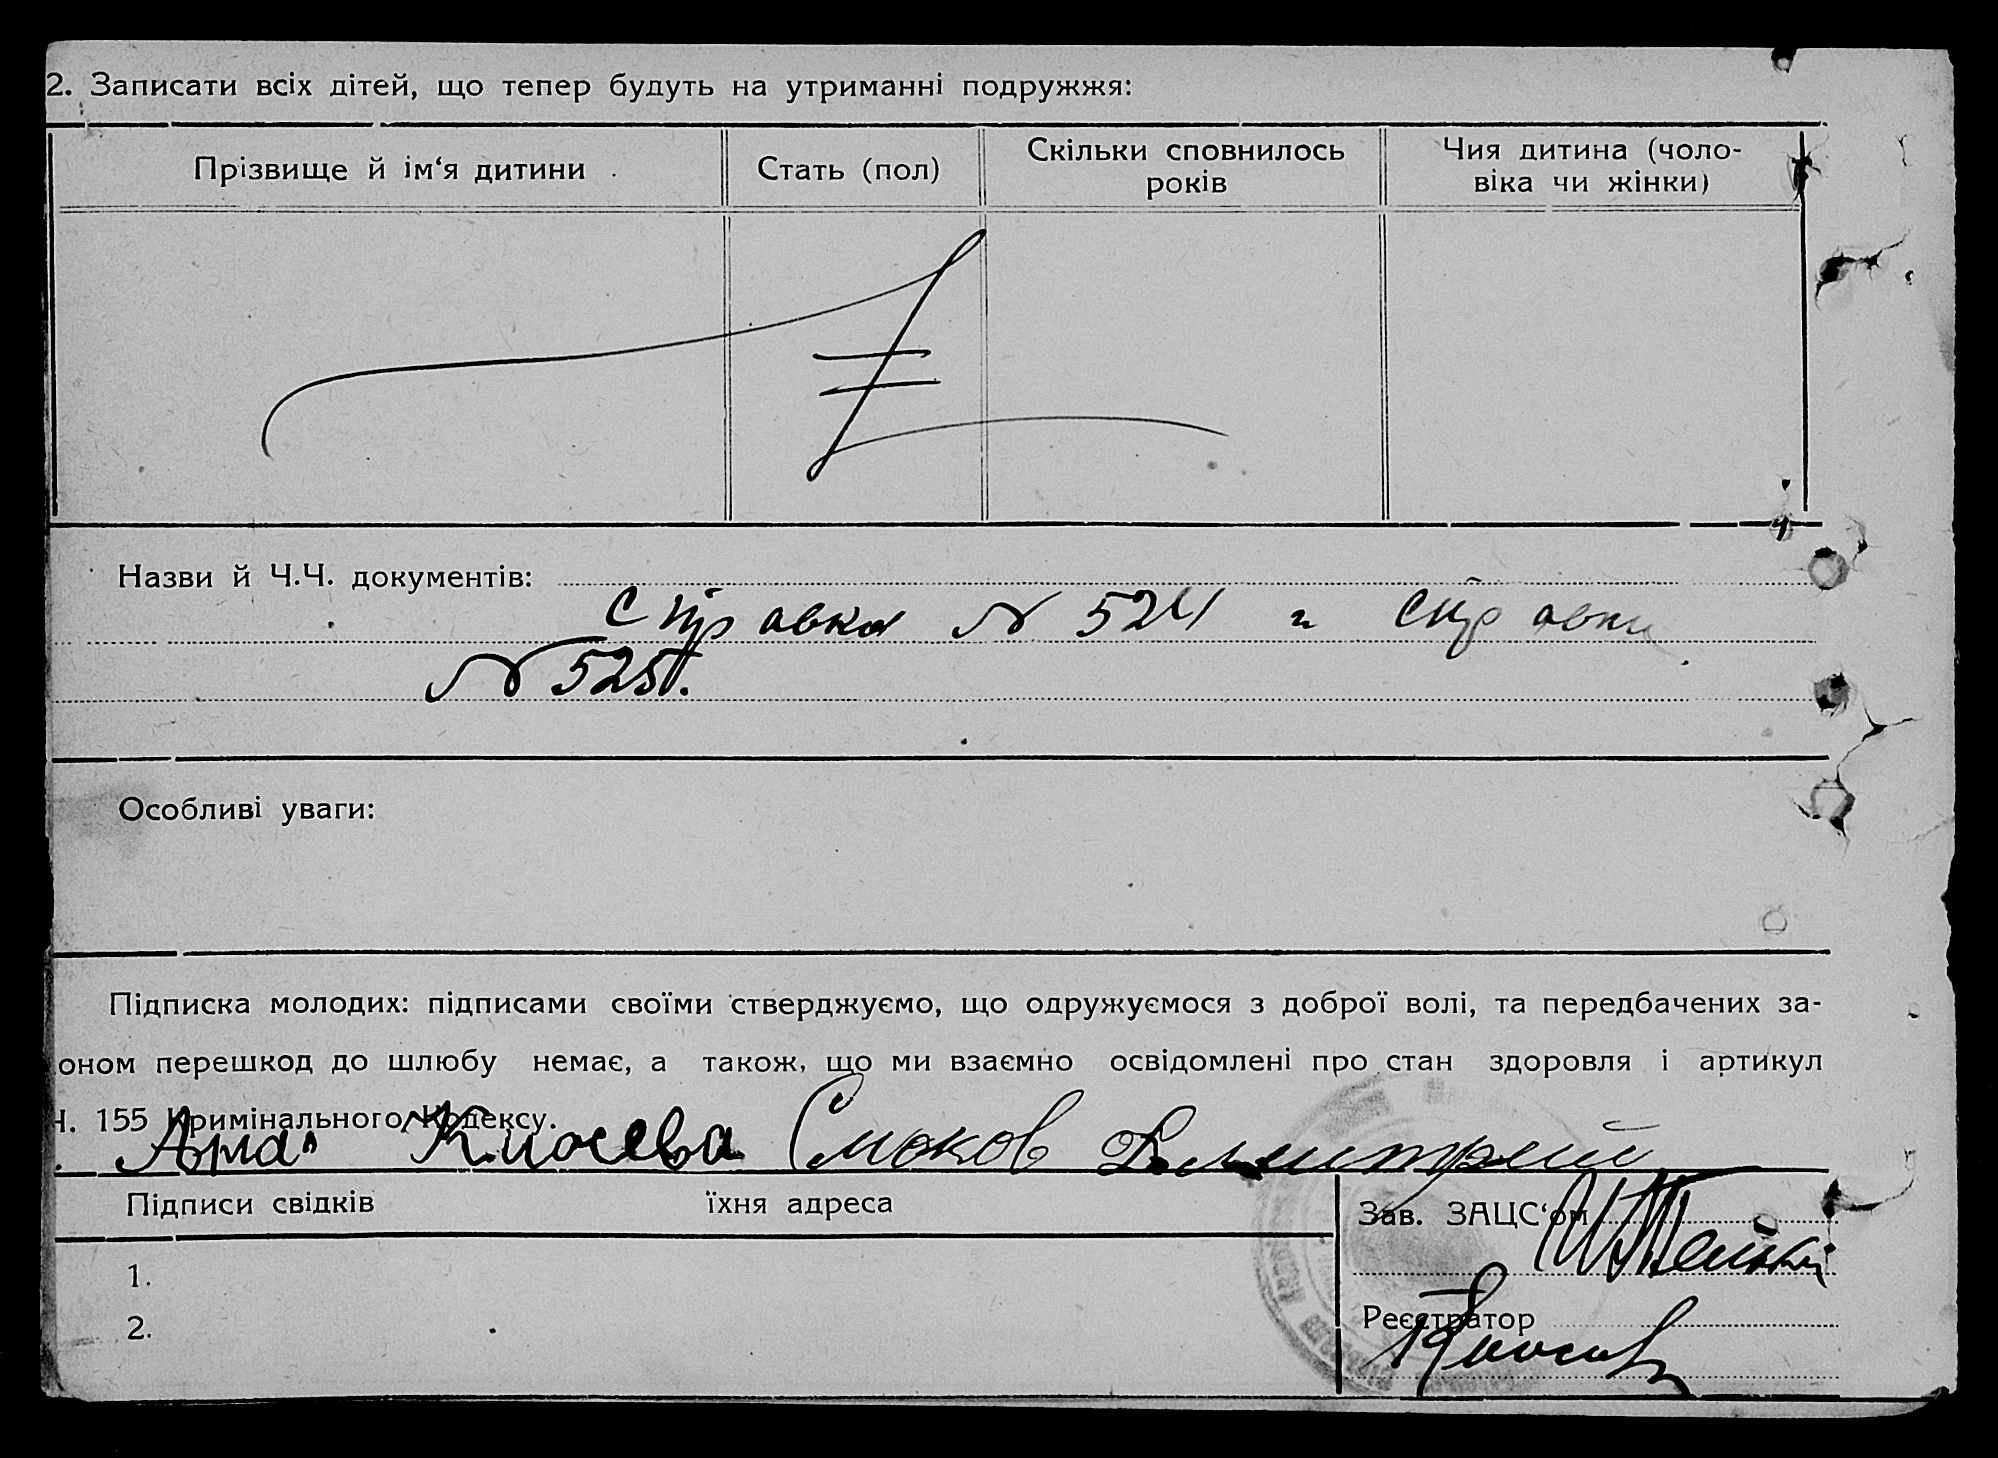 2. Записати всіх дітей, що тепер будуть на утриманні подружжя:
Прізвище й ім‘я дитини
Стать (пол)
Скільки сповнилось
років
Чия дитина (чоло-
віка чи жінки)
Назви й Ч.Ч. документів:
справка № 524 и справка
№ 525.
Особливі уваги:
Підписка молодих: підписами своїми стверджуємо, що одружуємося з доброї волі, та передбачених за-
оном перешкод до шлюбу немає, а також, що ми взаємно освідомлені про стан здоровля і артикул
Ч. 155 Кримінального Кодексу.
Киосева Смоков Димитрий
Підписи свідків
їхня адреса
1.
2.
Зав. ЗАЦС‘ом
Реєстратор